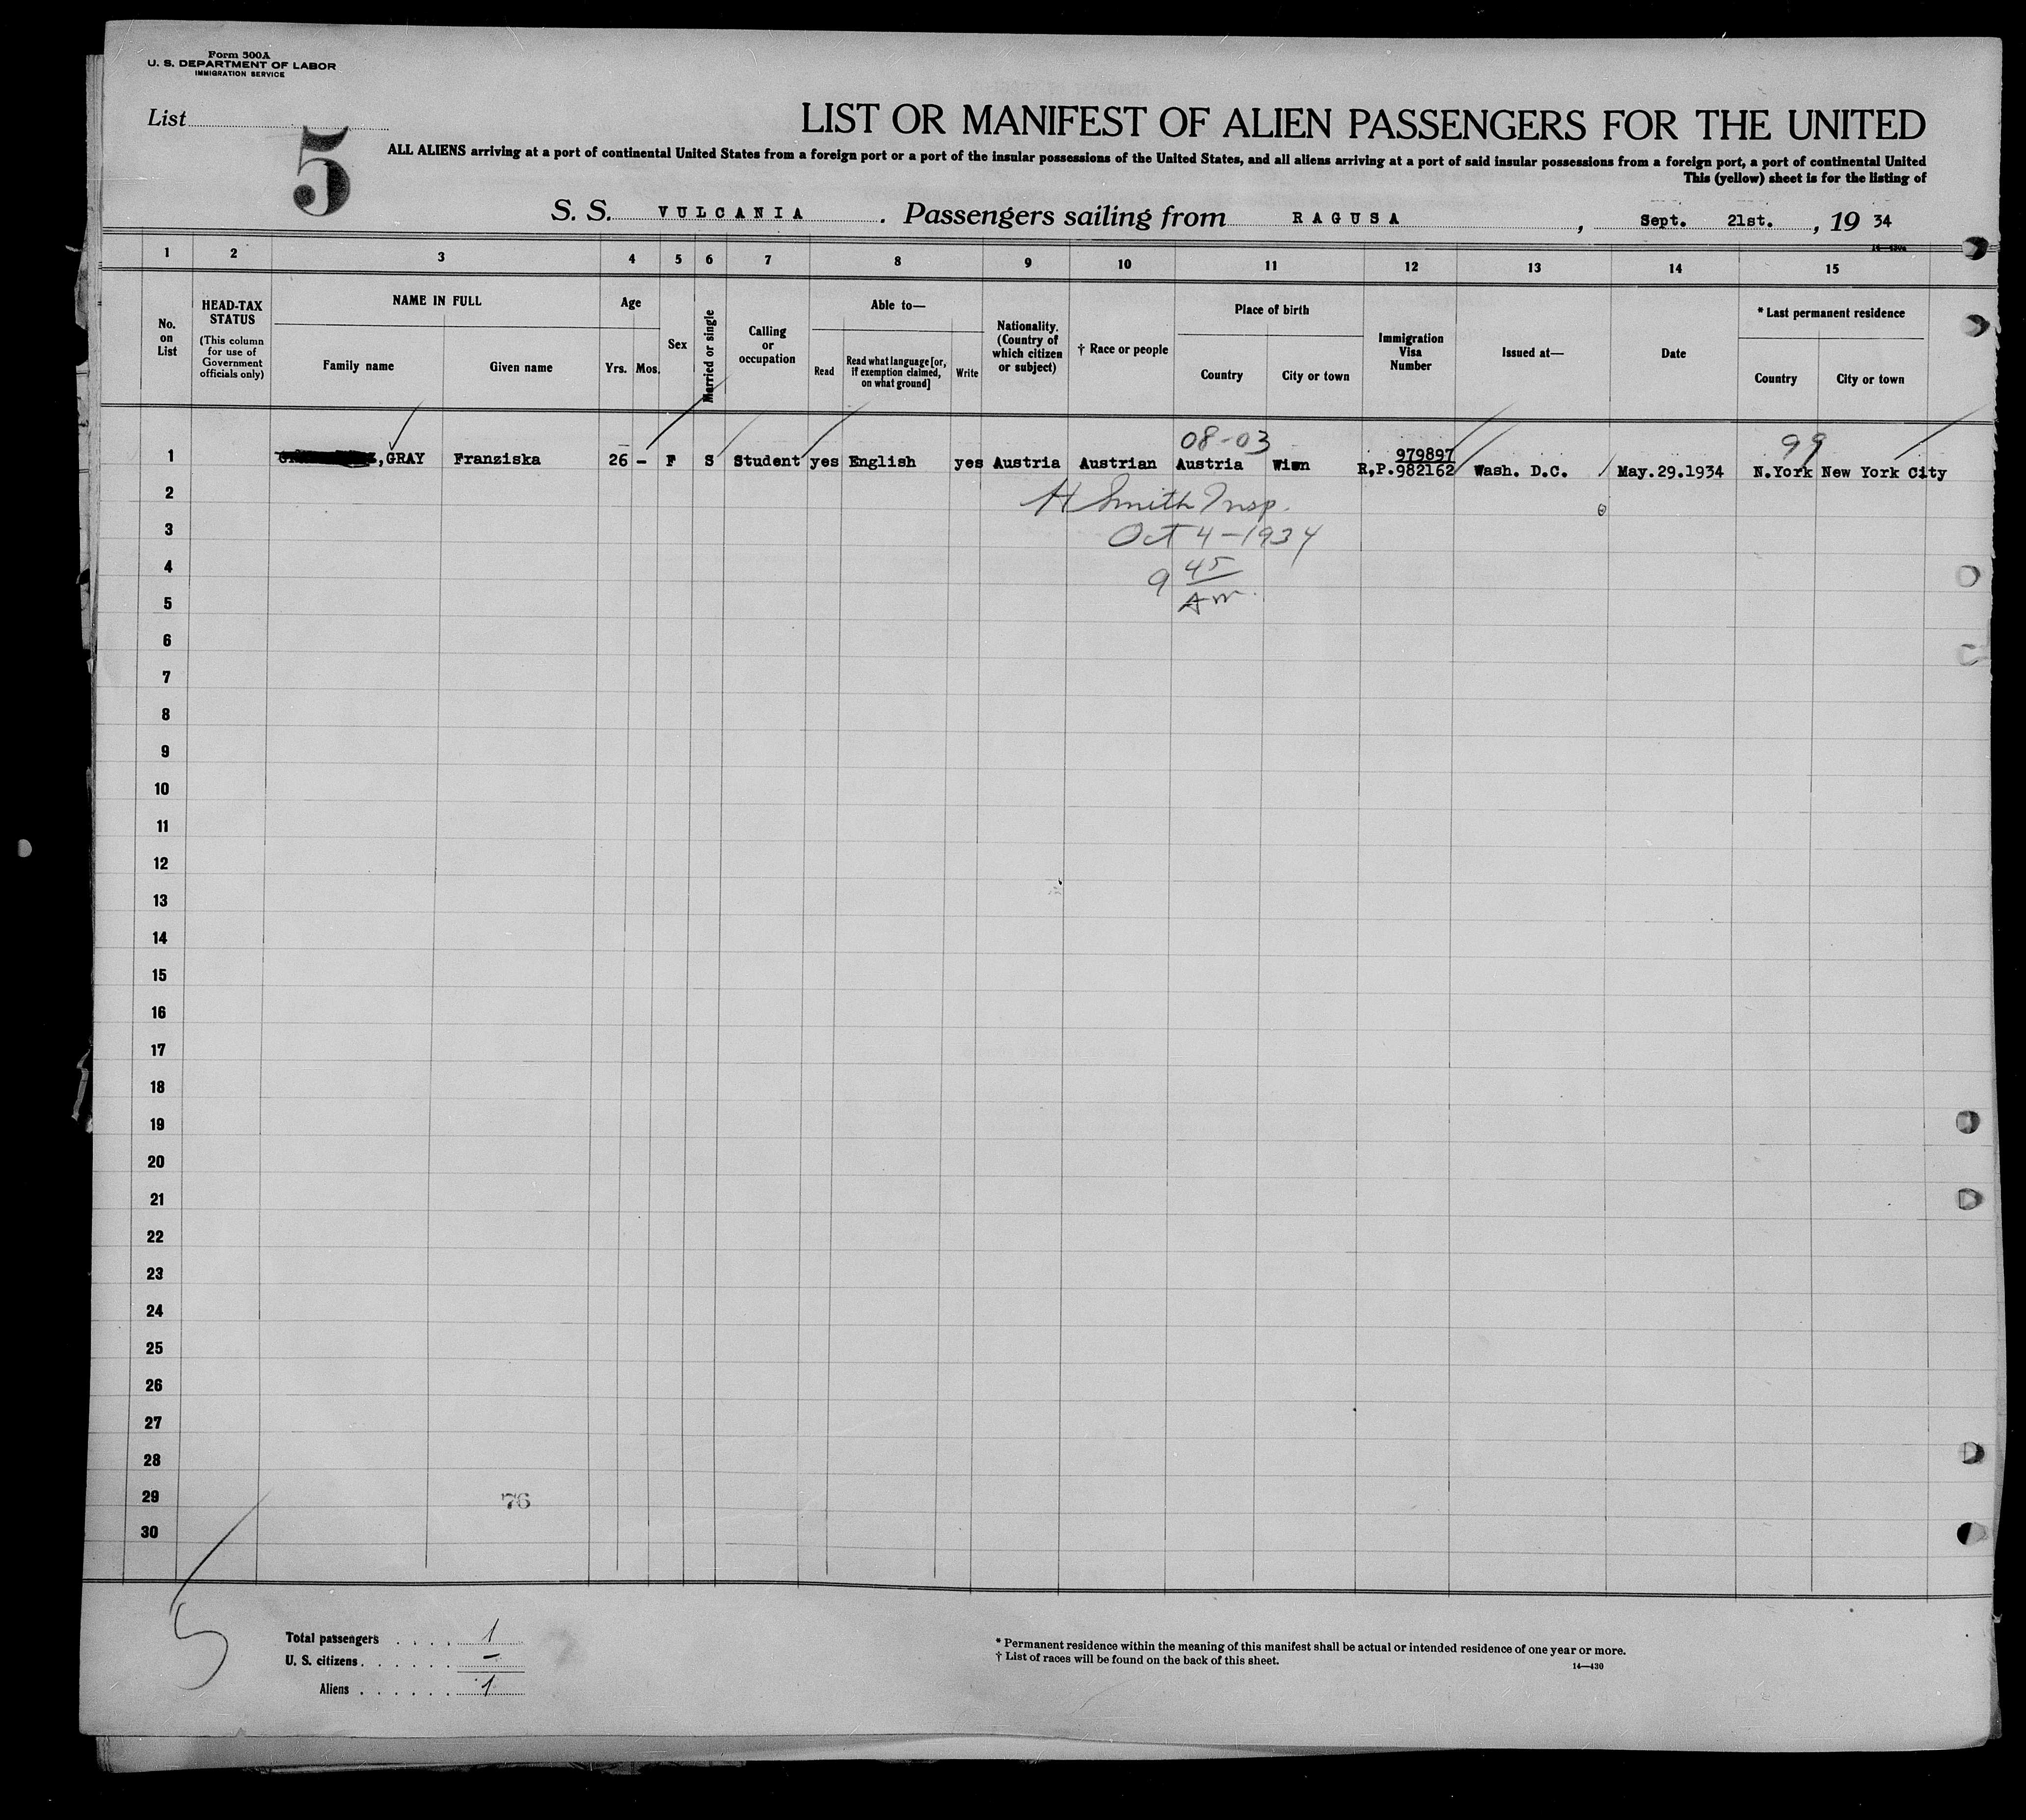 Form 500A
U. S. DEPARTMENT OF LABOR
IMMIGRATION SERVICE
List
5
LIST OR MANIFEST OF ALIEN PASSENGERS FOR THE UNITED
ALL ALIENS arriving at a port of continental United States from a foreign port or a port of the insular possessions of the United States, and all aliens arriving at a port of said insular possessions from a foreign port, a port of continental United
This (yellow) sheet is for the listing of
S. S. VULCANIA . Passengers sailing from RAGUSA , Sept. 21st. , 19 34
1 2 3 4 5 6 7 8 9 10 11 12 13 14 15
No. on List
HEAD-TAX STATUS
(This column for use of Government officials only)
NAME IN FULL
Family name
Given name
Age
Yrs. Mos.
Sex
Married or single
Calling or occupation
Able to—
Read
Read what language [or, if exemption claimed, on what ground]
Write
Nationality. (Country of which citizen or subject)
† Race or people
Place of birth
Country
City or town
Immigration Visa Number
Issued at—
Date
* Last permanent residence
Country
City or town
08-03
99
979897
1 ,GRAY Franziska 26 - F S Student yes English yes Austria Austrian Austria Wien R,P.982162 Wash. D.C. May.29.1934 N.York New York City
2
H Smith Insp.
3
Oct 4-1934
4
9 45
5
Am.
6
7
8
9
10
11
12
13
14
15
16
17
18
19
20
21
22
23
24
25
26
27
28
29
76
30
5
Total passengers . . . . 1
U. S. citizens . . . . . . –
Aliens . . . . . . 1
* Permanent residence within the meaning of this manifest shall be actual or intended residence of one year or more.
† List of races will be found on the back of this sheet.
14—430